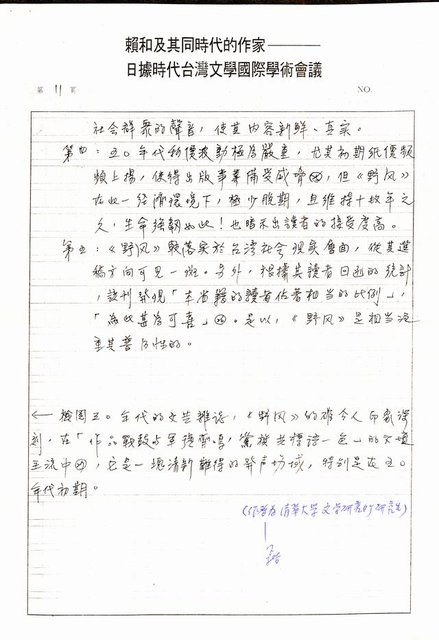 賴和及其同時代的作家———
日據時代台灣文學國際學術會議
第 11 頁
NO.
社會群眾的聲音，使其內容新鮮、真實。
第四：五〇年代物價波動極為嚴重，尤其初期紙價頻
頻上揚，使得出版事業備受威脅，但《野风》
在此一經濟環境下，極少脫期，且維持十幾年之
久，生命強韌如此！也暗示出讀者的接受度高。
第五：《野风》頗落實於台灣社會現實層面，從其進
稿方向可見一斑。另外，根據其讀者回函的統計
，該刊發現「本省籍的讀者佔著相當的比例」，
「為此甚為可喜」。是以，《野风》是相當注
重其普及性的。
← 檢閱五〇年代的文藝雜誌，《野风》的確令人印象深
刻，在「作品戰鼓与軍號齊鳴，黨旗共標語一色」的文壇
主流中，它是一塊清新難得的發声場域，特別是在五〇
年代初期。
(作者為清華大學文學研究所研究生)